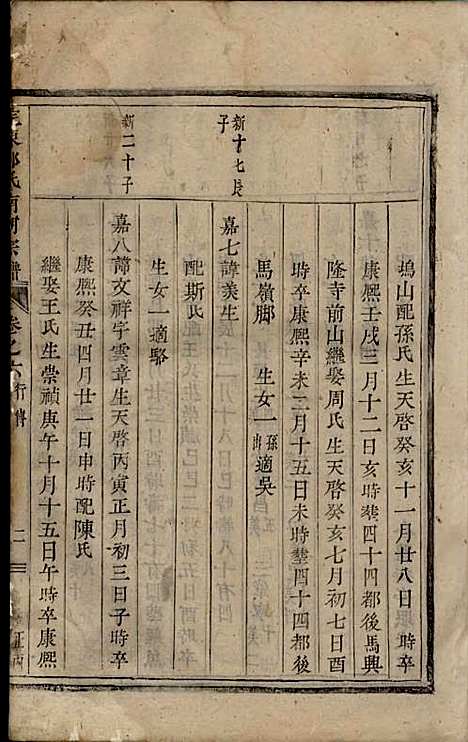 塢山配孫氏生天啓癸亥十一月廿八日 時卒
康熙壬戌三月十二日亥時塟四十四都後馬興
隆寺前山繼娶周氏生天啓癸亥七月初七日酉
時卒康熙辛未二月十五日未時塟四十四都後
馬嶺脚 生女一 適吳
新十七長子
嘉七諱美生
配斯氏
生女一適駱
新二十子
嘉八諱文祥字雲章生天啓丙寅正月初三日子時卒
康熙癸丑四月廿一日申時配陳氏
繼娶王氏生崇禎庚午十月十五日午時卒康熙
氏南 宗譜 卷之六 行傳 二